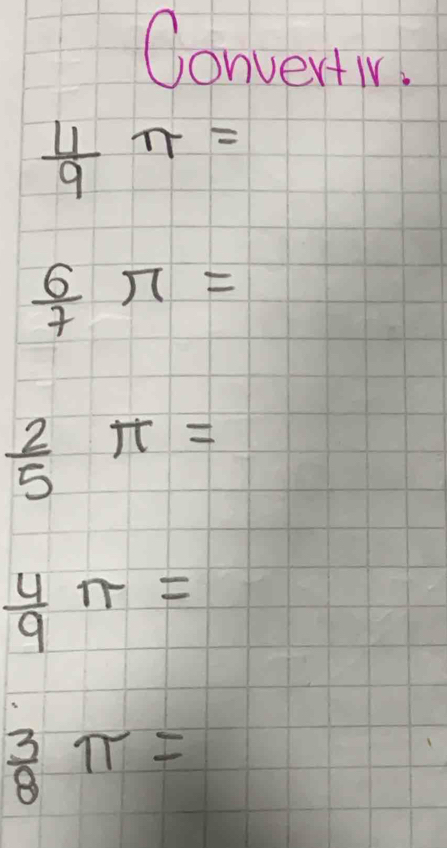 Convertir.
4/9 π =
6/7 π =
2/5 π =
4/9 π =
3/8 π =